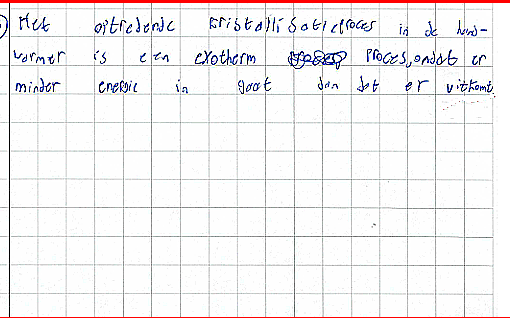 Het oitredende kristallisatieproces in de hand-
warmer is een exotherm proces, omdat er
minder energie in gaat dan dat er uitkomt